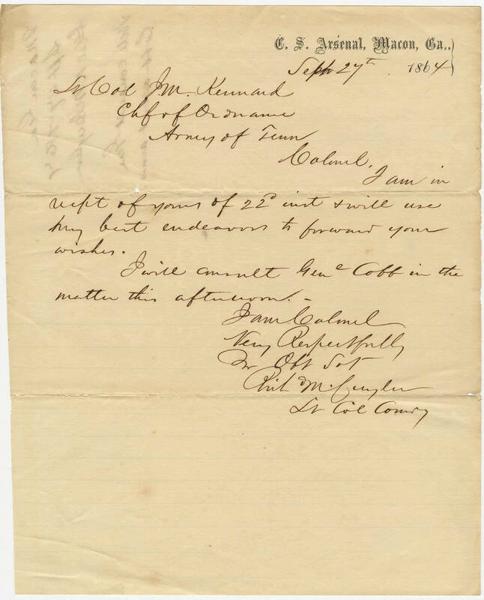 C. S. Arsenal, Macon, Ga.,
Sept 27th 1864
Lt Col J M. Kennard
Chf of Ordnance
Army of Tenn
Colonel.
I am in
recipt of yours of 22d inst & will use
my best endeavors to forward your
wishes.
I will consult Genl Cobb in the
matter this afternoon. -
I am Colonel
Very Respectfully
Yr Obt Svt
Rich'd M. Cuyler
Lt Col Comdg